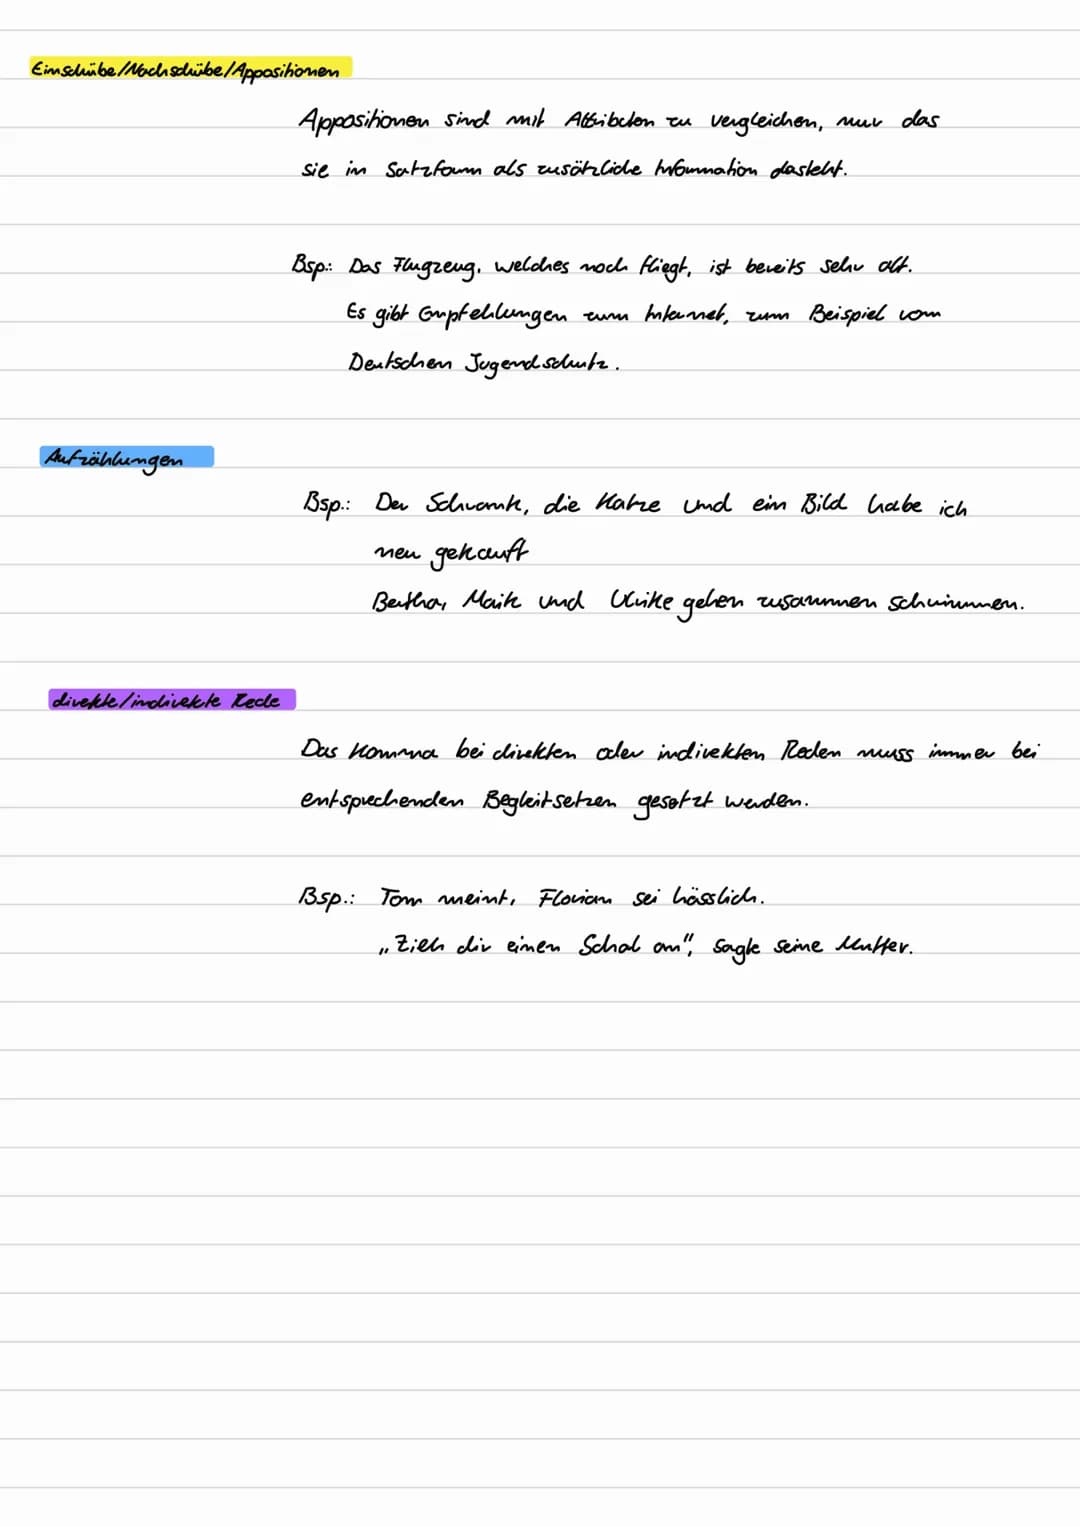 Einschübe/Nachschübe/Appositionen
Appositionen sind mit Attributen zu vergleichen, nur das
sie in Satzform als zusätzliche Information dasteht.
Bsp.: Das Flugzeug, welches noch fliegt, ist bereits sehr alt.
Es gibt Empfehlungen zum Internet, zum Beispiel vom
Deutschen Jugendschutz.
Aufzählungen
Bsp.: Der Schrank, die Katze und ein Bild habe ich
neu gekauft
Bertha, Maik und Ulrike gehen zusammen schwimmen.
direkte/indirekte Rede
Das Komma bei direkten oder indirekten Reden muss immer bei
entsprechenden Begleitsetzen gesetzt werden.
Bsp.: Tom meint, Florian sei hässlich.
„Zieh dir einen Schal an", sagte seine Mutter.